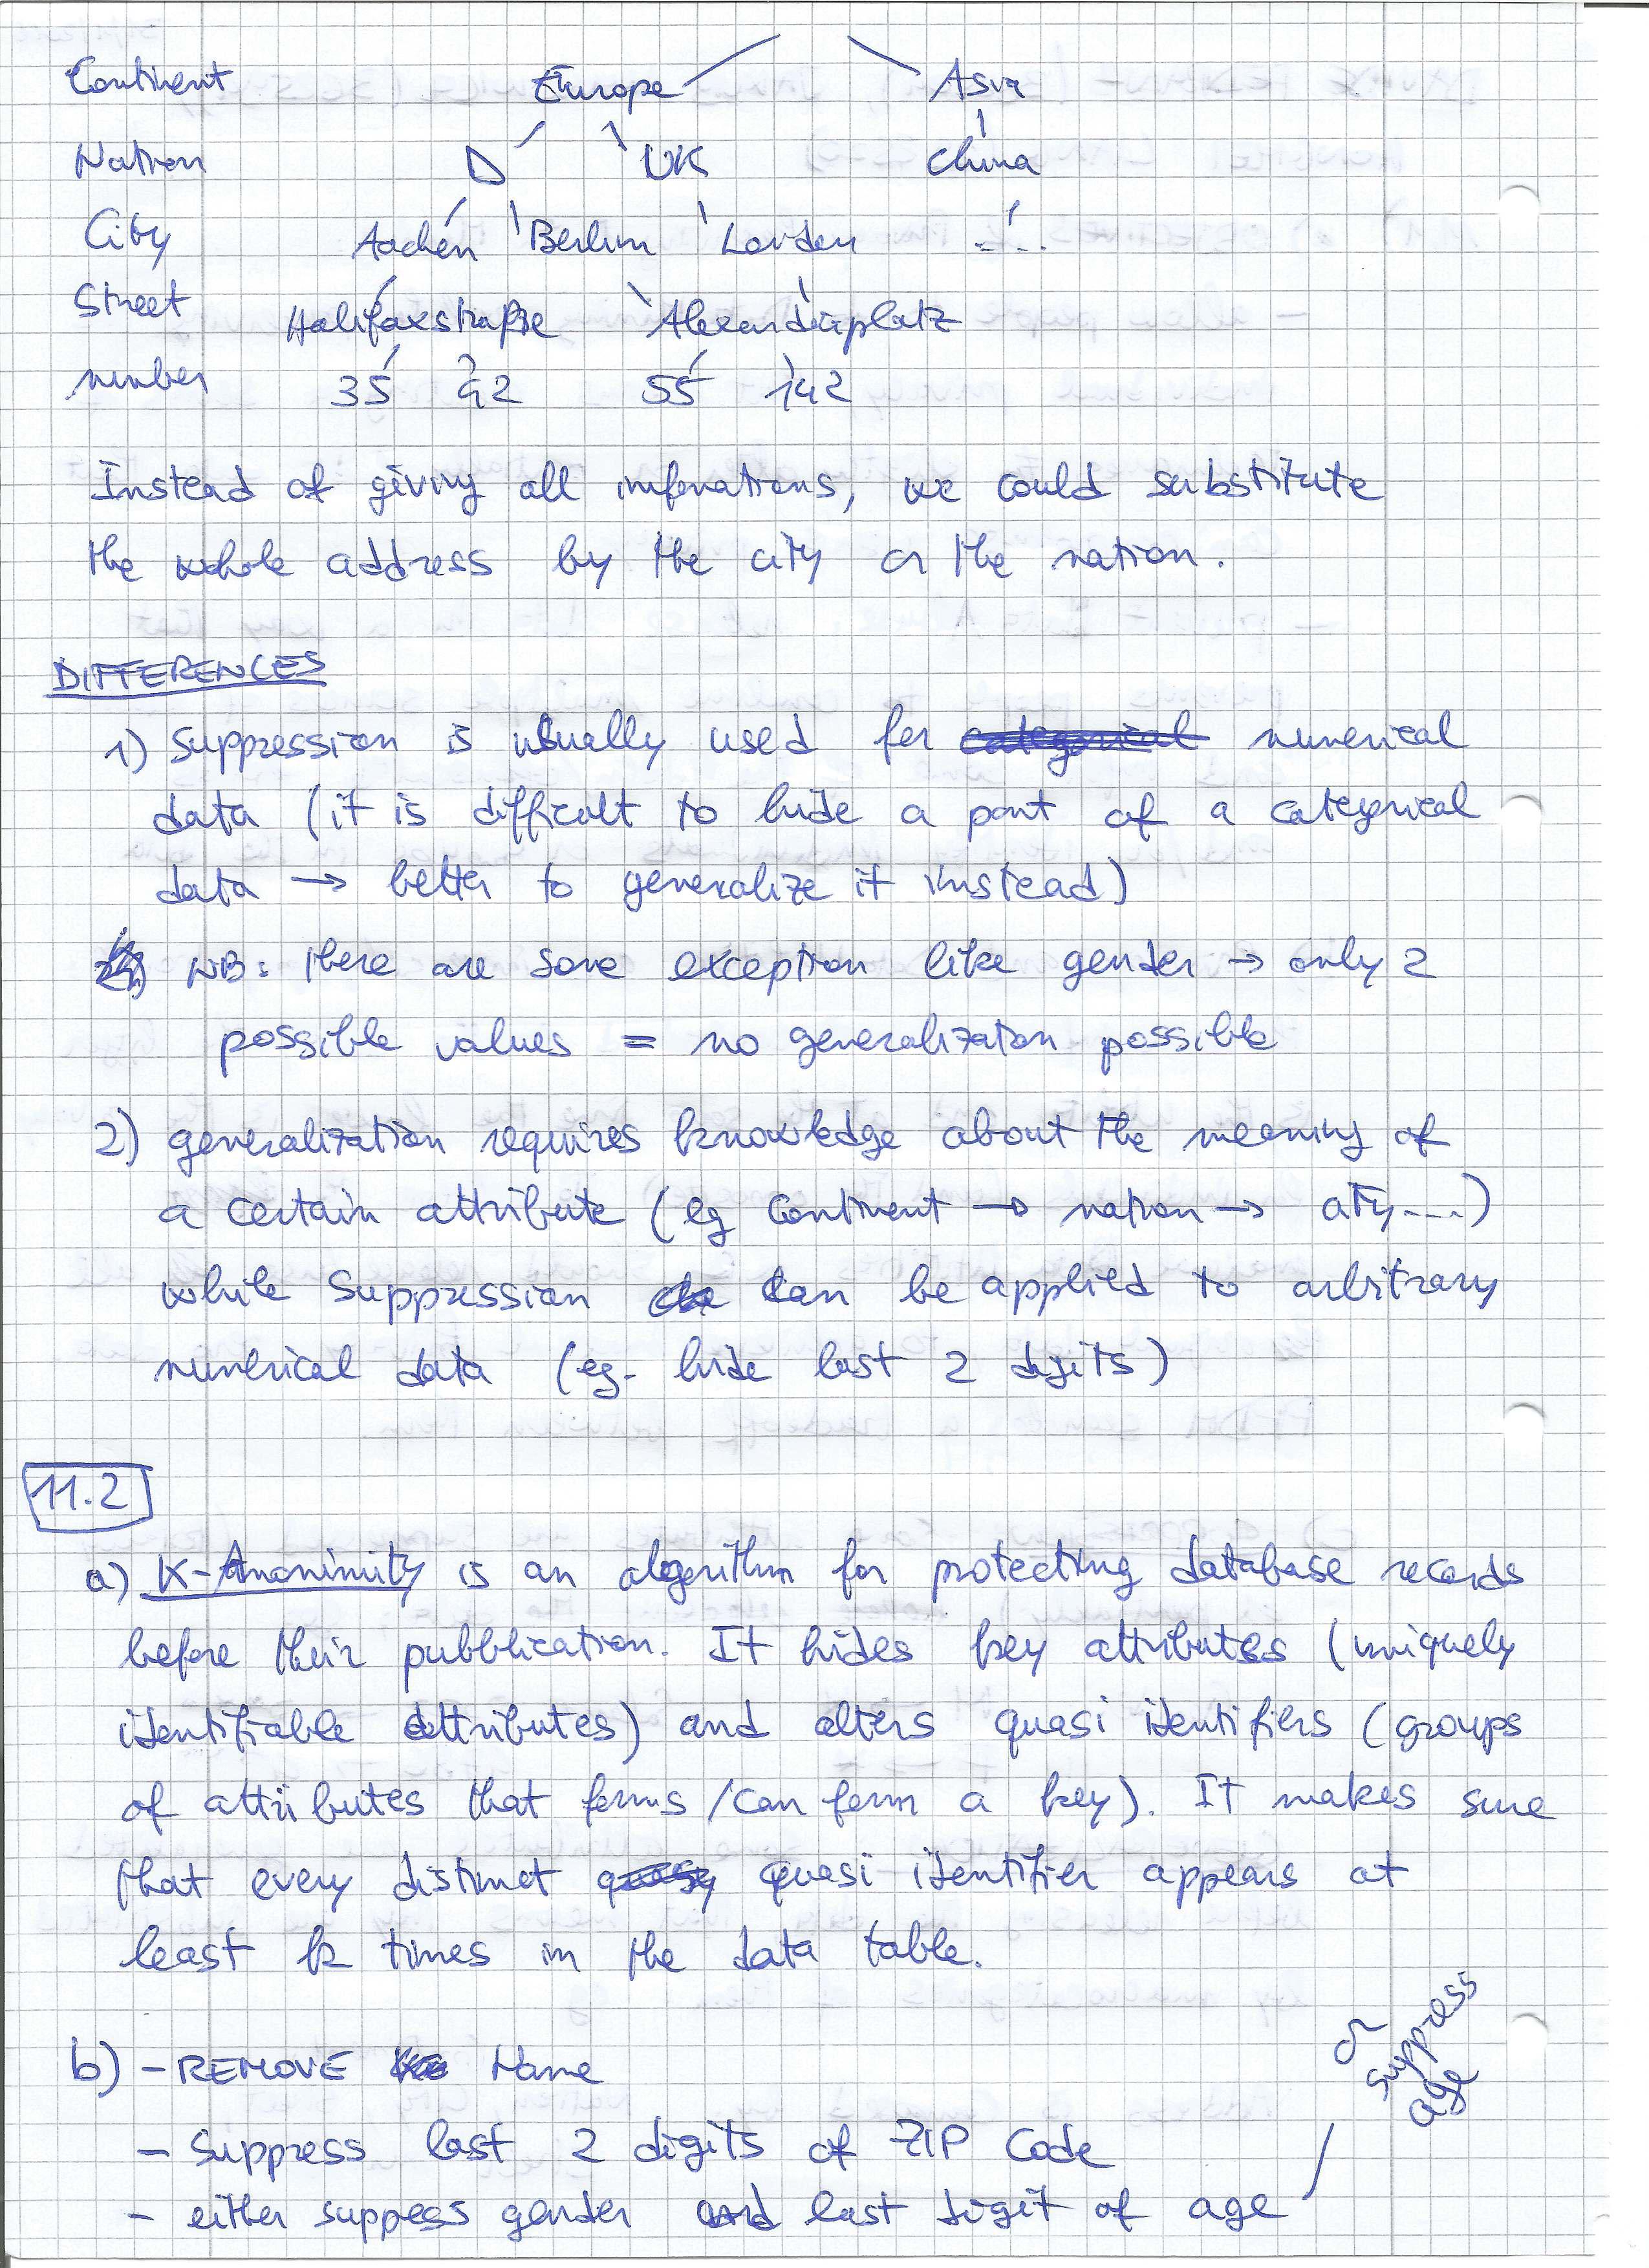 Continent Europe Asia
Nation D UK China
City Aachen Berlin London ....
Street Halifaxstraße Alexanderplatz
number 35 42 55 142
Instead of giving all infomations, we could substitute
the whole address by the city or the nation.
DIFFERENCES
1) Suppression is usually used for categorical numerical
data (it is difficult to hide a part of a categorical
data → better to generalize it instead)
NB: there are some exception like gender → only 2
possible values = no generalization possible
2) generalization requires knowledge about the meaning of
a certain attribute (eg Continent → nation → city....)
while Suppression can be applied to arbitrary
numerical data (eg. hide last 2 digits)
11.2
a) K-Anonimity is an algorithm for protecting database records
before their pubblication. It hides key attributes (uniquely
identifiable attributes) and alters quasi identifiers (groups
of attributes that forms/can form a key). It makes sure
that every distinct quasi identifier appears at
least k times in the data table.
b) - REMOVE Name
- Suppress last 2 digits of ZIP Code
- either suppess gender and last digit of age / or
suppress
age